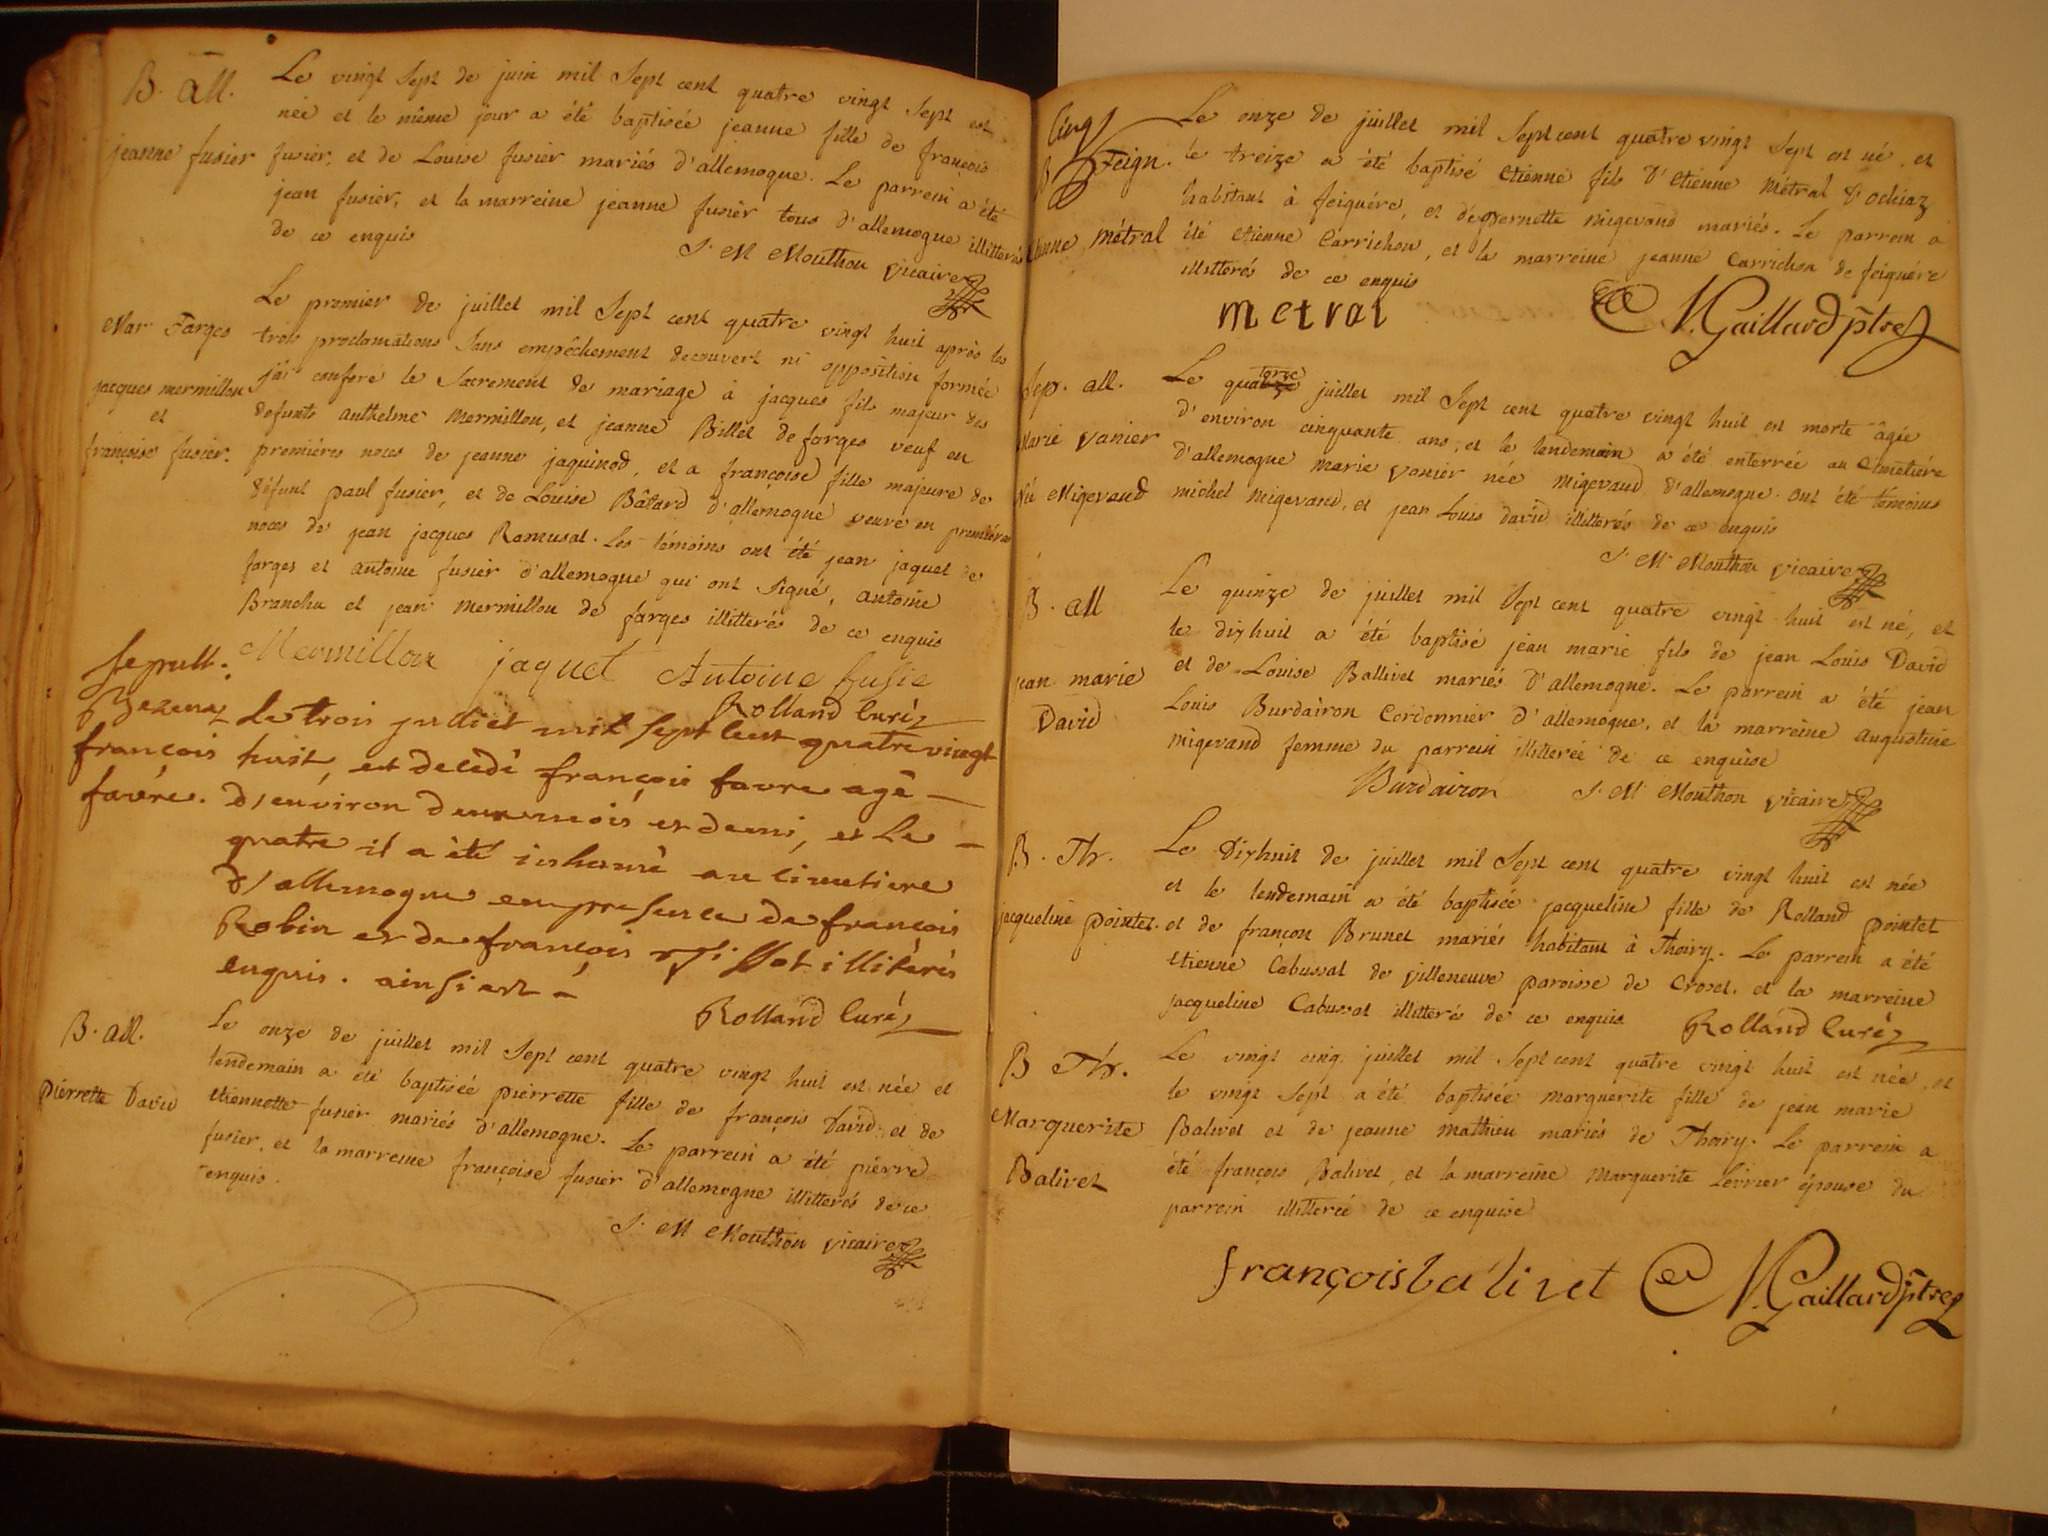 B. all.
jeanne fusier
Le vingt sept de juin mil sept cent quatre vingt sept est
née et le même jour a été baptisée jeanne fille de françois
fusier, et de Louise fusier mariés d'allemogne. Le parrein a été
jean fusier, et la marreine jeanne fusier tous d'allemogne illitterés
de ce enquis
J. M Mouthon vicaire
Mar Farges
jacques mermillon
et
françoise fusier.
Le premier de juillet mil sept cent quatre vingt huit après les
trois proclamations sans empêchement decouvert ni opposition formée
j'ai conferé le Sacrement de mariage à jacques fils majeur des
defunts anthelme mermillon, et jeanne Billet de farges veuf en
premiéres noces de jeanne jaquinod, et a françoise fille majeure de
défunt paul fusier, et de Louise Bâtard d'allemogne veuve en premiéres
noces de jean jacques Ramusat. Les témoins ont été jean jaquet de
farges et antoine fusier d'allemogne qui ont signé, antoine
Branchu et jean mermillon de farges illitterés de ce enquis
Mermillon jaquet Antoine fusie
Rolland Curé
sepult.
françois
favre.
Le trois juillet mil sept cent quatre vingt
huit, est decedé françois favre agé
d'environ deux mois et demi, et Le
quatre il a été inhumé au cimetiere
d'allemogne en presence de françois
Robin et de françois illiterés
enquis. ainsi est
Rolland Curé
B. all.
pierrette David
Le onze de juillet mil sept cent quatre vingt huit est née et
lendemain a été baptisée pierrette fille de françois David et de
etiennette fusier mariés d'allemogne. Le parrein a été pierre
fusier, et la marreine françoise fusier d'allemogne illitterés de ce
enquis.
J. M Mouthon vicaire
Cinq
B Feign.
etienne métral
Le onze de juillet mil sept cent quatre vingt sept est né, et
le treize a été baptisé etienne fils d'etienne métral d'ochiaz
habitant à feiguére, et de pernette migevand mariés. Le parrein a
été etienne Carrichon, et la marreine jeanne Carrichon de feiguére
illitterés de ce enquis
metral N. Gaillard ptre
Sep. all.
Marie vanier
née Migevand
Le quatorze juillet mil sept cent quatre vingt huit est morte âgée
d'environ cinquante ans, et le lendemain a été enterrée au cimetiére
d'allemogne marie vanier née migevand d'allemogne. ont été témoins
michel migevand, et jean Louis david illitterés de ce enquis
J. M Mouthon vicaire
B. all
jean marie
David
Le quinze de juillet mil sept cent quatre vingt huit est né, et
le dixhuit a été baptisé jean marie fils de jean Louis David
et de Louise Ballivet mariés d'allemogne. Le parrein a été jean
Louis Burdairon Cordonnier d'allemogne, et la marreine augustine
migevand femme du parrein illiterée de ce enquise
Burdairon J. M. Mouthon vicaire
B. Th.
jacqueline pointet.
Le dixhuit de juillet mil sept cent quatre vingt huit est née
et le lendemain a été baptisée jacqueline fille de Rolland pointet
et de françon Brunet mariés habitant à Thoiry. Le parrein a été
etienne Cabussat de villeneuve paroisse de Crozet. et la marreine
jacqueline Cabussat illitterés de ce enquis Rolland Curé
B Th.
Marguerite
Balivet
Le vingt cinq juillet mil sept cent quatre vingt huit est née, et
le vingt sept a été baptisée marguerite fille de jean marie
Balivet et de jeanne mathieu mariés de Thoiry. Le parrein a
été françois Balivet, et la marreine marguerite Levrier épouse du
parrein illitterée de ce enquise
françois balivet N. Gaillard ptre